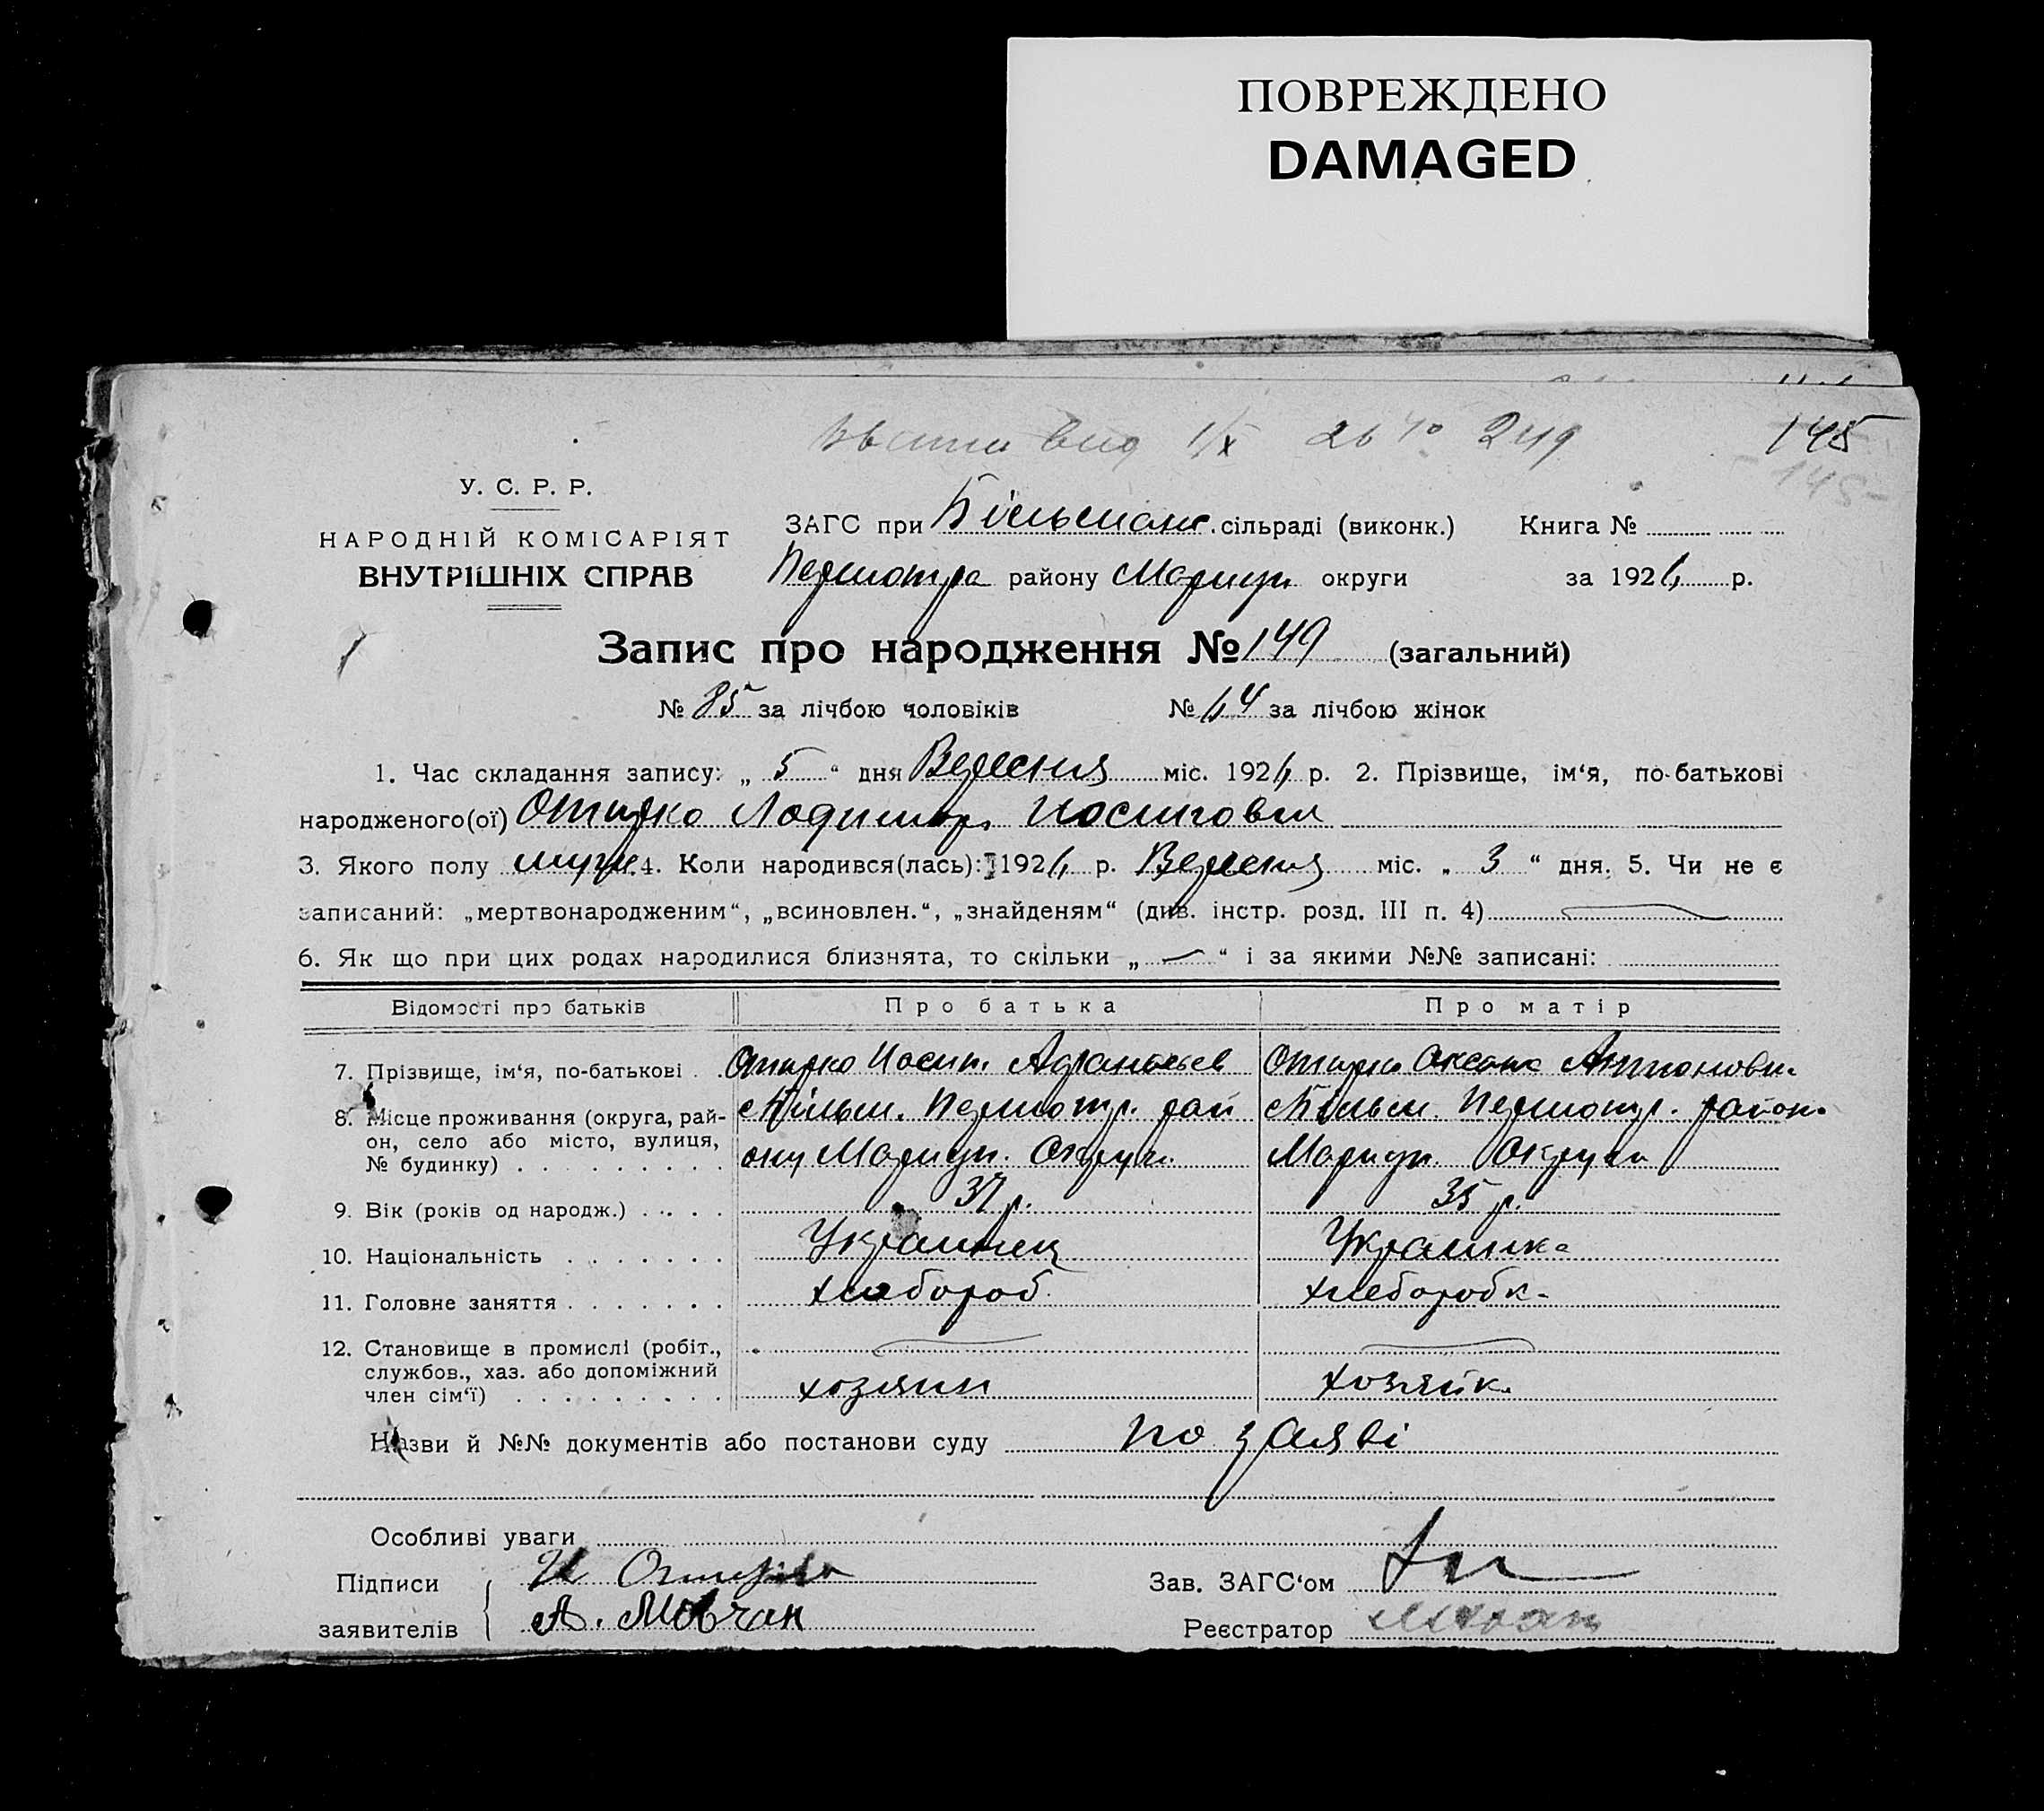 ПОВРЕЖДЕНО
DAMAGED
1/X 249 145
145
У. С. Р. Р.
НАРОДНІЙ КОМІСАРІЯТ
ВНУТРІШНІХ СПРАВ
ЗАГС при Більманс. сільраді (виконк.) Книга №
района Мариуп округи за 1926 р.
Запис про народження № 149 (загальний)
№ 85 за лічбою чоловіків № 64 за лічбою жінок
1. Час складання запису: „ 5 “ дня Вересня міс. 1926 р. 2. Прізвище, ім‘я, по-батькові
народженого(ої) Отирко Лодимир. Иосипович
3. Якого полу мущ. 4. Коли народився(лась): 1926 р. Вересня міс. „ 3 “ дня. 5. Чи не є
записаний: „мертвонародженим“, „всиновлен.“, „знайденям“ (див. інстр. розд. III п. 4)
6. Як що при цих родах народилися близнята, то скільки „ — “ і за якими №№ записані:
Відомості про батьків Про батька Про матір
7. Прізвище, ім‘я, по-батькові . . Отирко Иосип. Афанасьев Отирко Оксана Антонови.
8. Місце проживання (округа, рай- Більм. рай Більм. район.
он, село або місто, вулиця, ону Мариуп. Округи Мариуп. Округи
№ будинку) . . . . . . . . .
9. Вік (років од народж.) . . . . 37 р. 35 р.
10. Національність . . . . . . . Украинец Украинка
11. Головне заняття . . . . . . . хлебороб хлеборобк.
12. Становище в промислі (робіт.,
службов., хаз. або допоміжний
член сім‘ї) . . . . . . . . . хозяин хозяйк.
Назви й №№ документів або постанови суду по заяві
Особливі уваги
Підписи И Отирко Зав. ЗАГС‘ом
заявителів А. Мовчан Реєстратор